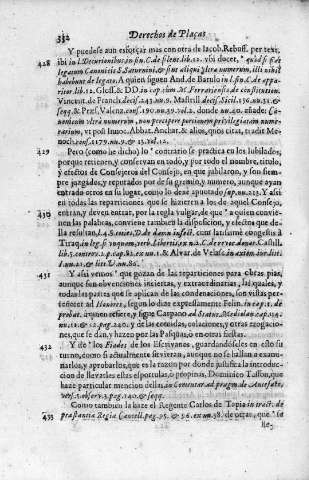 332 Derechos de Plaças
Y puedese aun esforçar mas con otra de Iacob. Rebuff. per text.
428 ibi in l. Decurionibus in fin. C. de silent. lib. 12. vbi docet, quòd si sit de
legatum Canonicis S. Saturnini, & sint aliqui vltra numerum, illi nihil
habebunt de legato. A quien siguen And. de Bartulo in l. fin. C. de appa-
ritor. lib. 12. Gloss. & DD. in cap. cùm M. Ferrariensis de constitution.
Vincent. de Franch. decis. 243. nu. 9. Mastrill. decis. Sicil. 196. nu. 31. &
seqq. & Præs. Valenz. cons. 190. nu. 39. vol. 2. donde nu. 40. añade: Ca-
nonicum vltra numerum, non percipere portionem privilegiatam nume-
rarium, vt post Innoc. Abbat. Anchar. & alios, quos citat, tradit Me-
noch. cons. 1179. nu. 9. & 13. vol. 12.
429 Pero (como ie dicho) lo contrario se practica en los Iubilados;
porque retienen, y conservan en todo, y por todo el nombre, titulo,
y efectos de Consejeros del Consejo, en que jubilaron, y son siem-
pre juzgados, y reputados por de su gremio, y numero, aunque ayan
entrado otros en su lugar, como lo dexè apuntado sup. nu. 213. Y assi
en todas las reparticiones que se hazieren à los de aquel Consejo,
430 entran, y deven entrar, por la regla vulgar, de que a quien convie-
nen las palabras, convienen tambien la disposicion, y efectos que de-
lla resultan, l. 4. §. toties, D. de damn. infect. cum latissimè congestis à
Tiraq. in leg. si vnquam, verb. Libertis, ex n. 2. C. de revoc. donat. Castill.
lib. 5. controv. 2. p. cap. 82. ex nu. 1. & Alvar. de Velasc. in axiom. iur. lit.
I. nu. 21. & lit. V. nu. 80.
431 Y assi vemos que gozan de las reparticiones para obras pias,
aunque son obvenciones inciertas, y extraordinarias, las quales, y
todas las partes que se aplican de las condenaciones, son vistas per-
tenecer al Honores, segun lo dize expressamente Felin. in cap. 1. de
probat. à quien refiere, y sigue Carpano ad Statut. Mediolan. cap. 134.
nu. 11. & 12. pag. 240. y de las comidas, colaciones, y otras erogacio-
nes, que se dan, y hazen por las Pasquas, ò en otras fiestas.
432 Y de los Fiades de los Escrivanos, guardandoseles en esto su
turno, como si actualmente sirvieran, aunque no se hallan à exami-
narlos, y aprobarlos, que es la razon por donde justifica la introduc-
cion de llevarlas estas esportulas, ò propinas, Dominico Tasson, que
haze particular mencion dellas, in Comment. ad pragm. de Antefato,
vers. 3. observ. 3. pag. 140. & seqq.
Como tambien la haze el Regente Carlos de Tapia in tract. de
433 præstantia Regiæ Cancell. pag. 25. & 36. ex nu. 38. de otras, que se
lle-